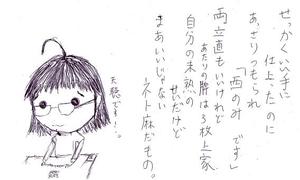 せっかくいい手に
仕上ったのに
あっさりつもられ
「西のみ です」
両立直もいいけれど
あたりの牌は3枚上家
自分の未熟の
せいだけど
まあいいじゃない
ネト麻だもの。
天聴です！